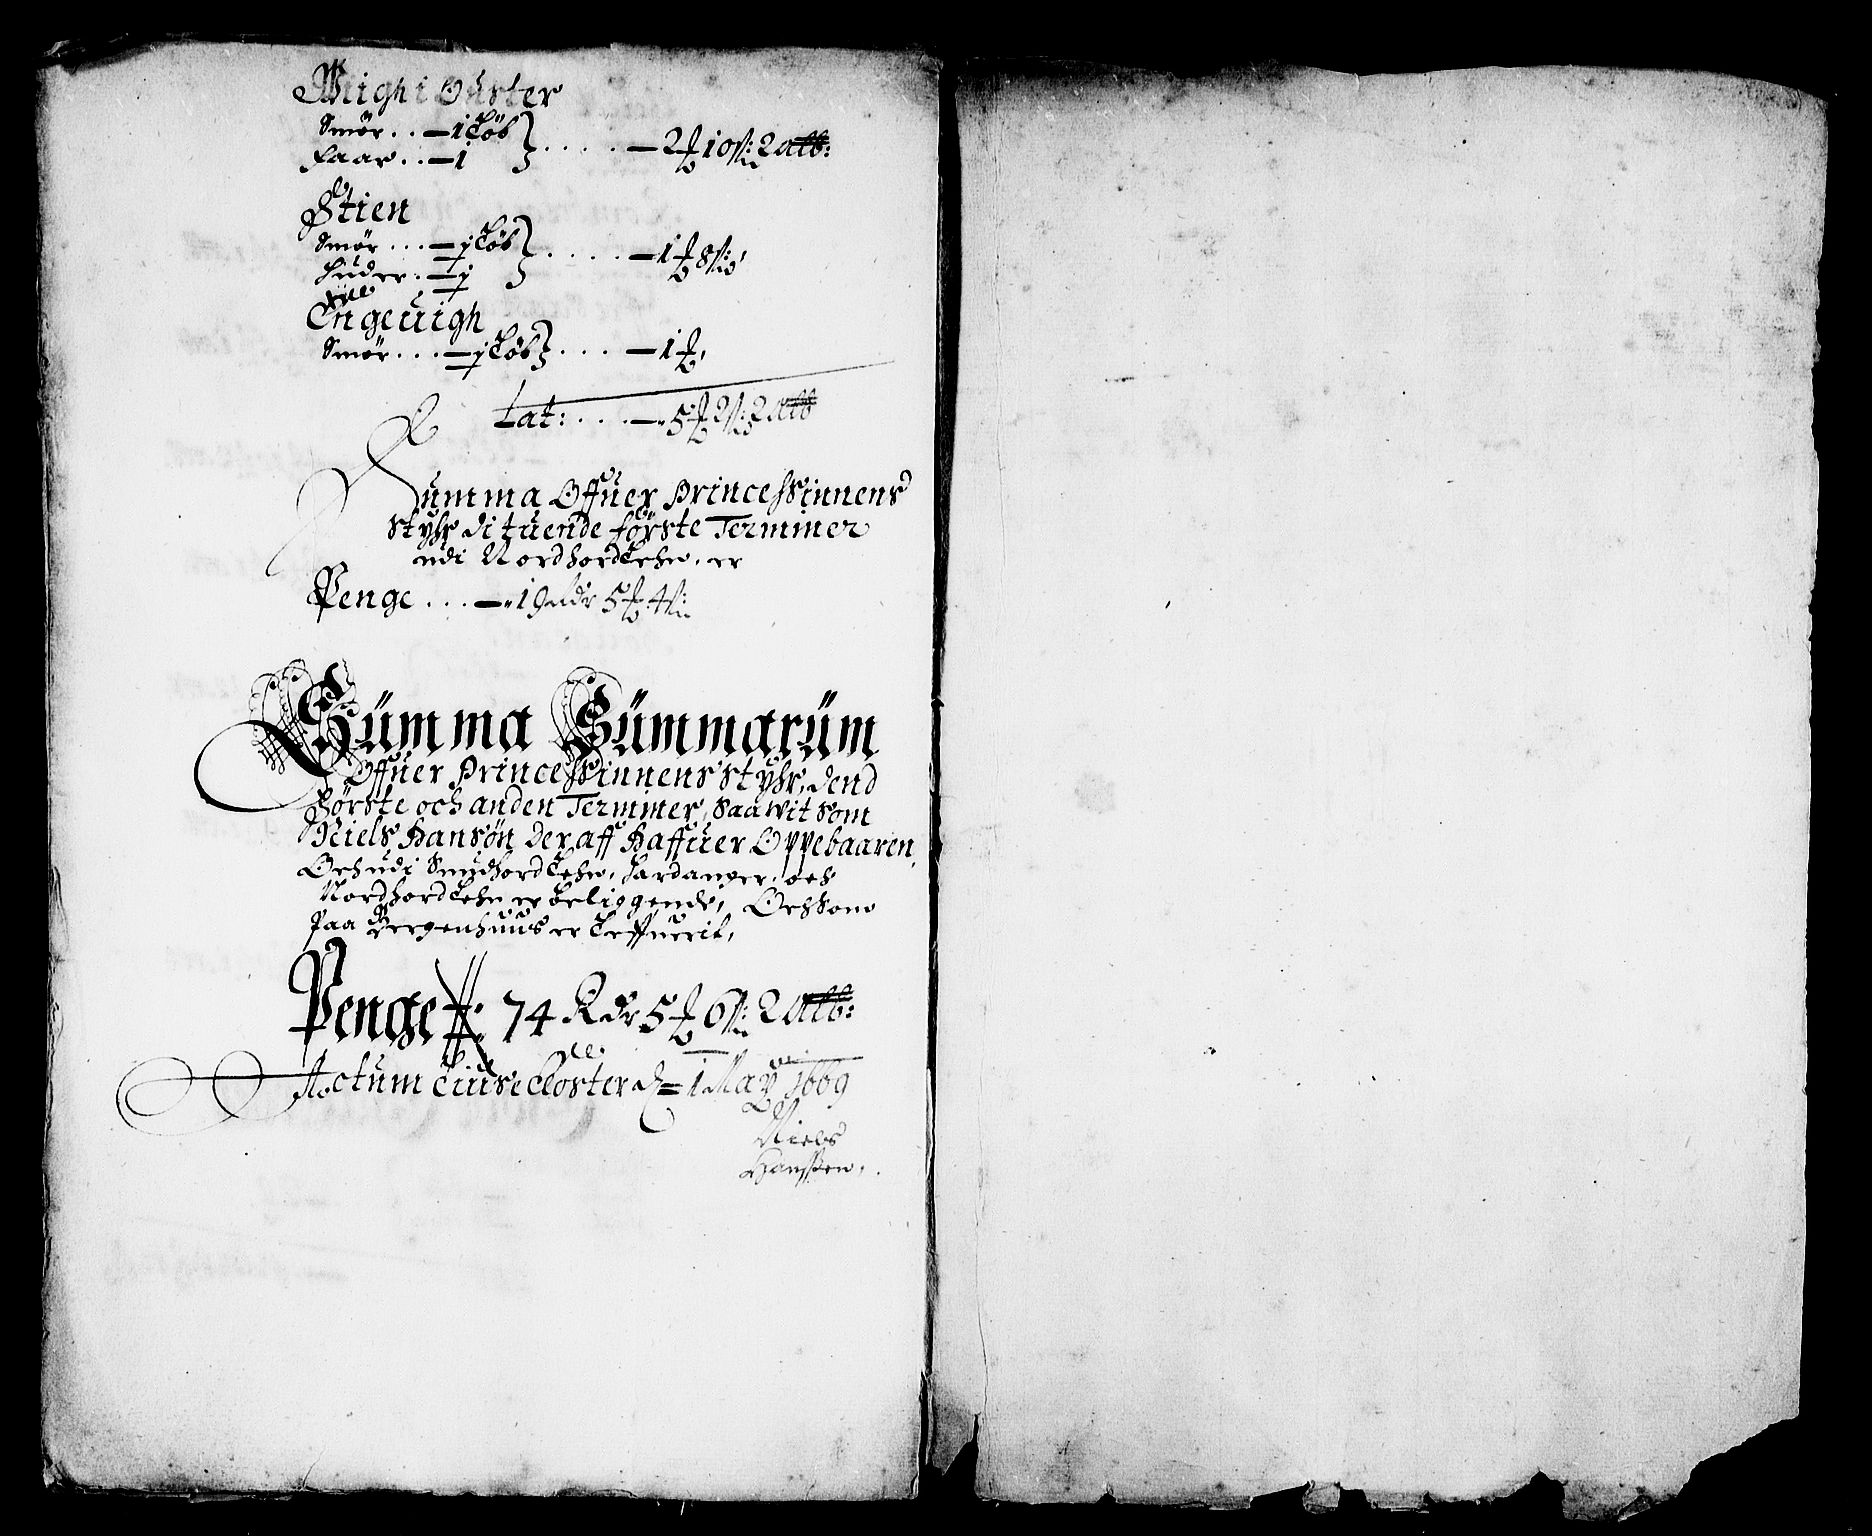 Wiigh i Ouster
Smør . . — 1 Løb
Faar . . — 1 . . . . — 2 ℔ 10 ß: 2 alb:
Stien
Smør . . . — j Løb
Huder . — j . . . . — 1 ℔ 8 ß:
Engeuigh
Smør . . . — j Løb . . . . — 1 ℔,
Lat: . . . — 5 ℔ 2 ß: 2 alb
Summa Offuer Princessinnens
Styhr di tuende første Terminer
udi Nordhordlehn, er
Penge . . . — 19 Rdr 5 ℔ 4 ß:
Summa Summarum
Offuer Princessinnens Styhr, dend
Første och anden Terminer, Saa wit som
Niels Hansøn Der aff Haffuer Oppebaaren,
Och udi Sundhordlehn, Hardanger, och
Nordhordlehn er beliggende, Och Som
Paa Bergenhuus er Leffuerit,
Penge 74 Rdr 5 ℔ 6 ß: 2 alb:
Actum Liuse Closter d = 1 May 1669
Niels
Hanssen,